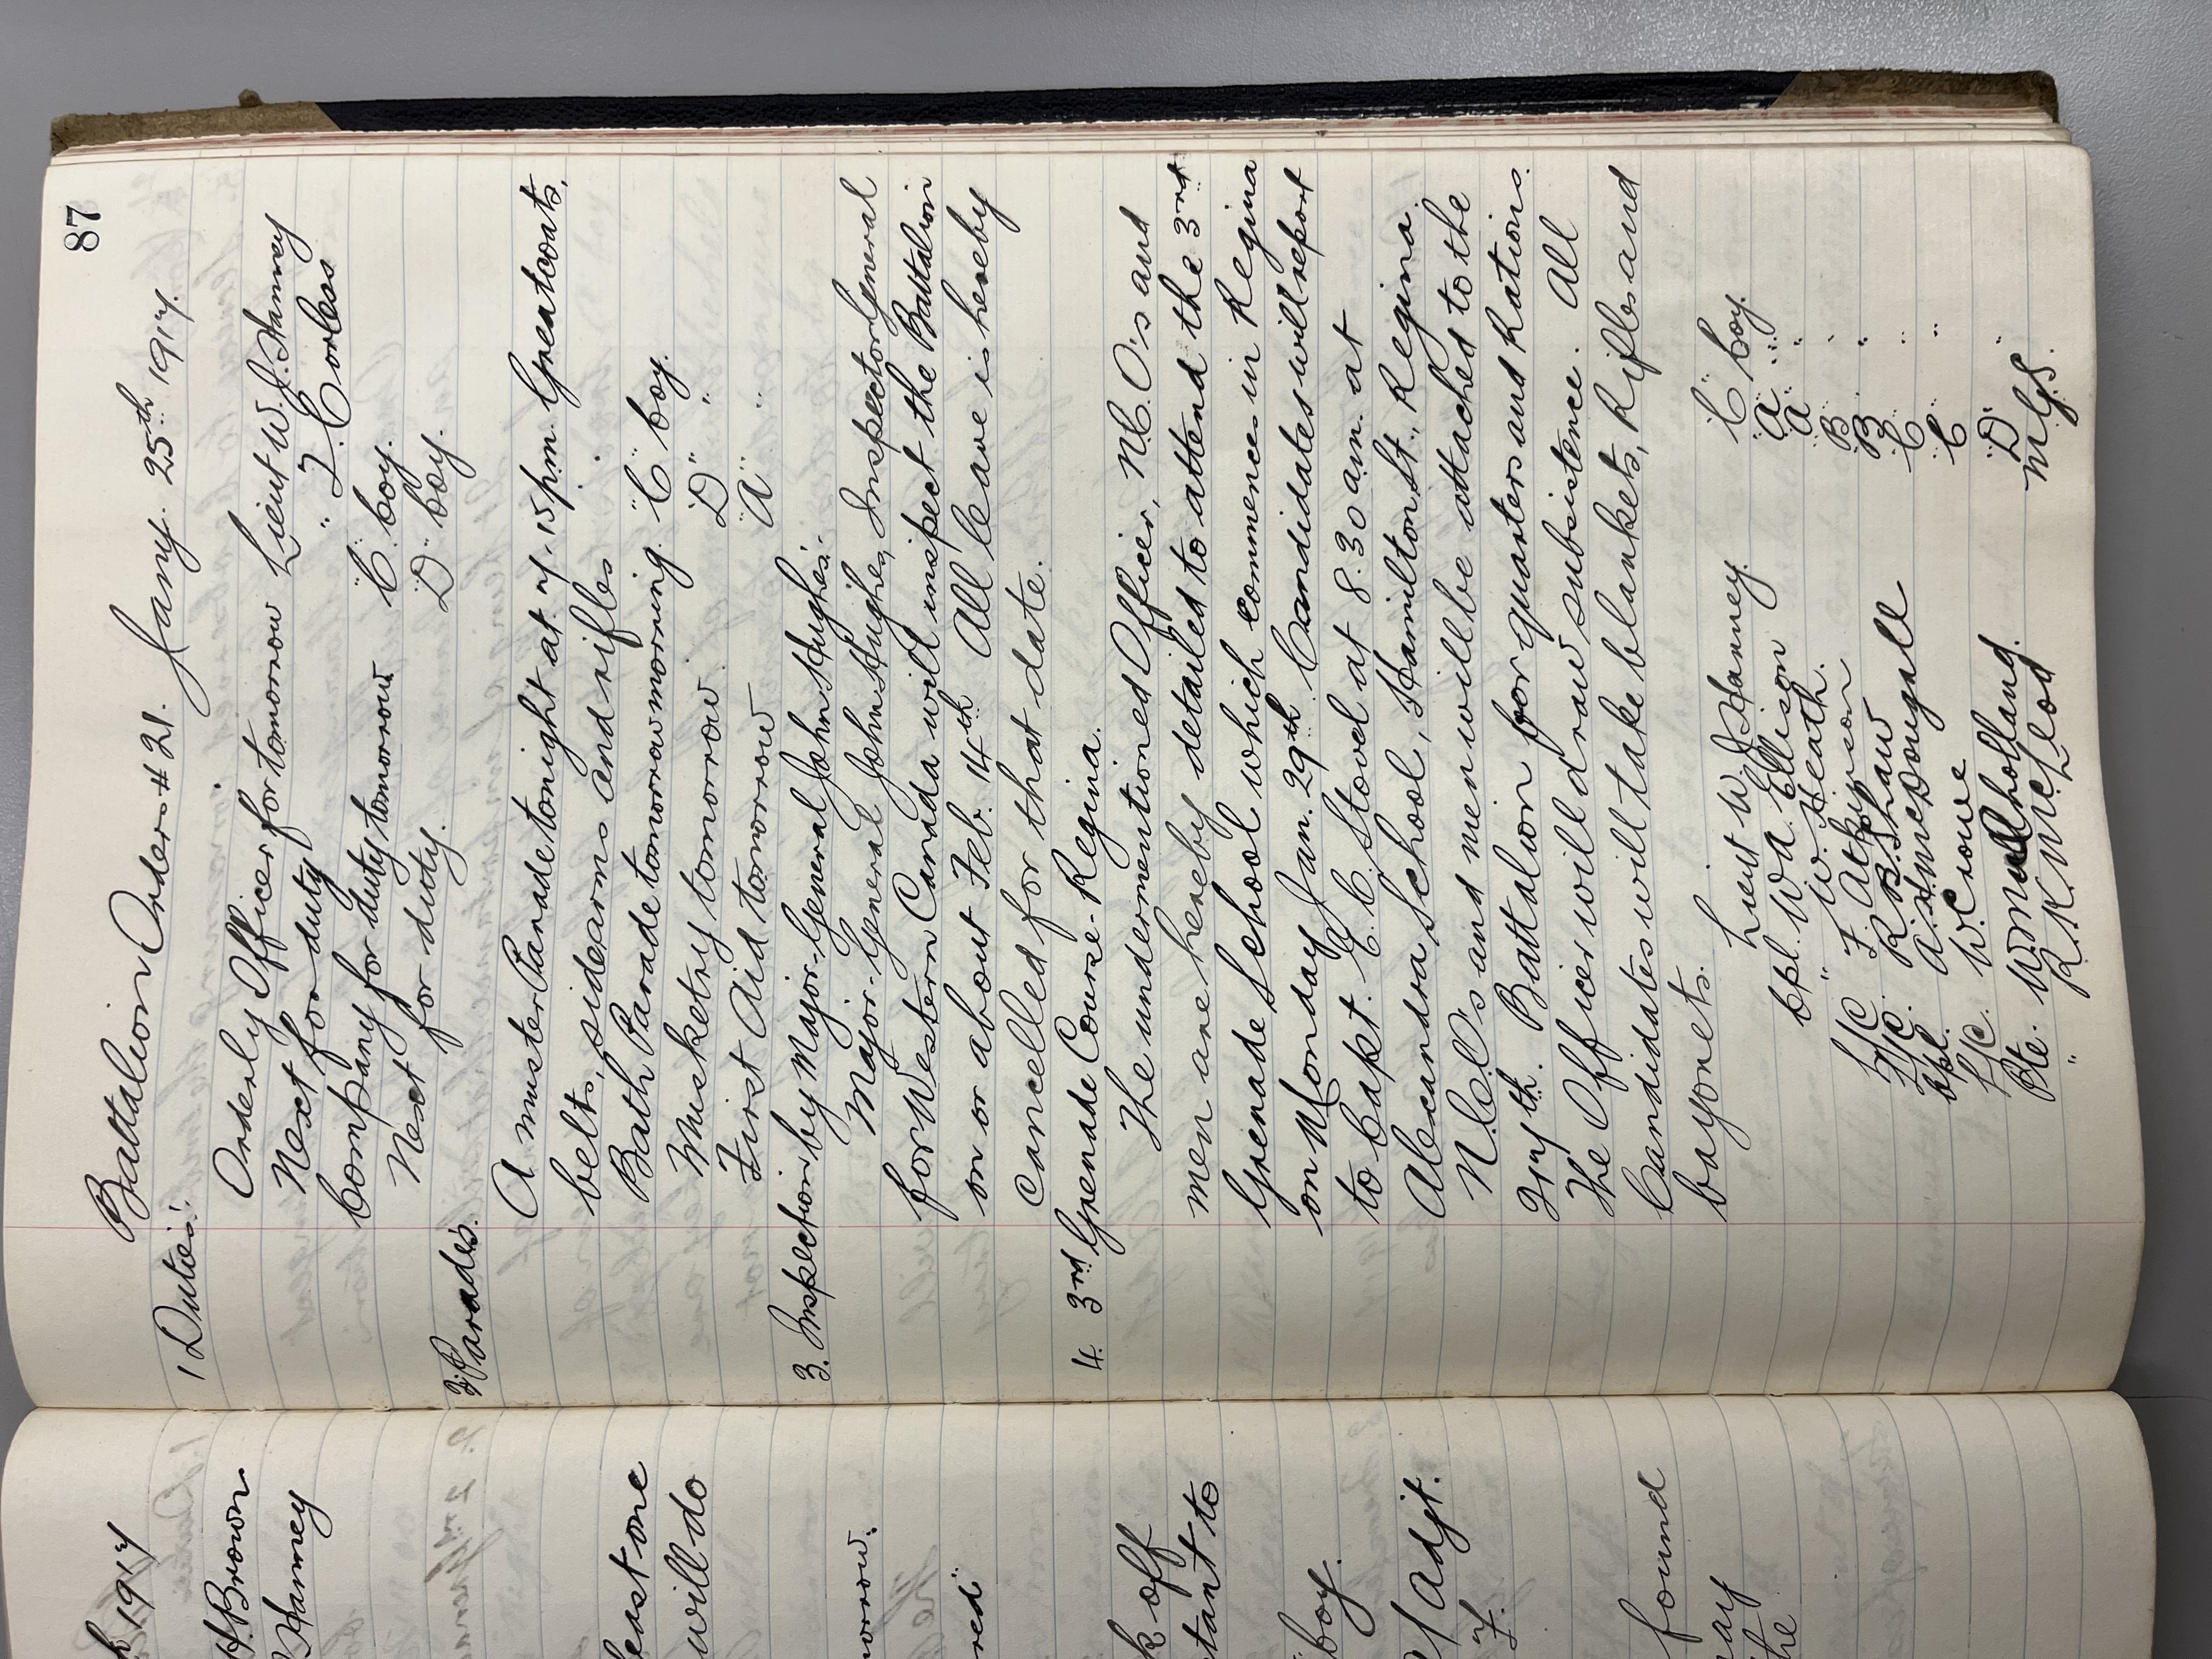 h 1917
H. Brown
Hanney
least one
will do
morrow.
red"
k off
tant to
boy.
/Adjt.
7.
found
ary
the
87
Battalion Orders # 21. Jany. 25th 1917.
1 Duties:
Orderly Officer for tomorrow Lieut W. J. Hanney
Next for duty " F. Corless
Company for duty tomorrow "C" Coy.
Next for duty. "D" Coy.
2. Parades.
A muster Parade tonight at 7.15 p.m. Greatcoats,
belts, sidearms and rifles
Bath Parade tomorrow morning. "C" Coy.
Musketry tomorrow "D" "
First Aid tomorrow "A" "
3. Inspection by Major-General John Hughes:-
Major-General John Hughes, Inspector General
for Western Canada will inspect the Battalion
on or about Feb. 14th All leave is hereby
cancelled for that date.
4. 3rd Grenade Course-Regina.
The undermentioned Officer, N.C.O's and
men are hereby detailed to attend the 3rd
Grenade School which commences in Regina
on Monday Jan. 29th Candidates will report
to Capt. E. C. Stovel at 8.30 am. at
Alexandra School, Hamilton St., Regina.
N.C.O's and men will be attached to the
217th. Battalion for quarters and Rations.
The Officer will draw subsistence. All
Candidates will take blankets, Rifles and
bayonets.
Lieut W J Hanney. "C" Coy.
Cpl. W. A. Ellison "A" "
" W. Heath. "A" "
L/C F. Atkinson "B" "
L/C. R. B. Shaw "B" "
Cpl. A. H. McDougall "C" "
L/C. W. Crowe "C" "
Pte. W. Mulholland. "D" "
" R. K. McLeod M.G.S.